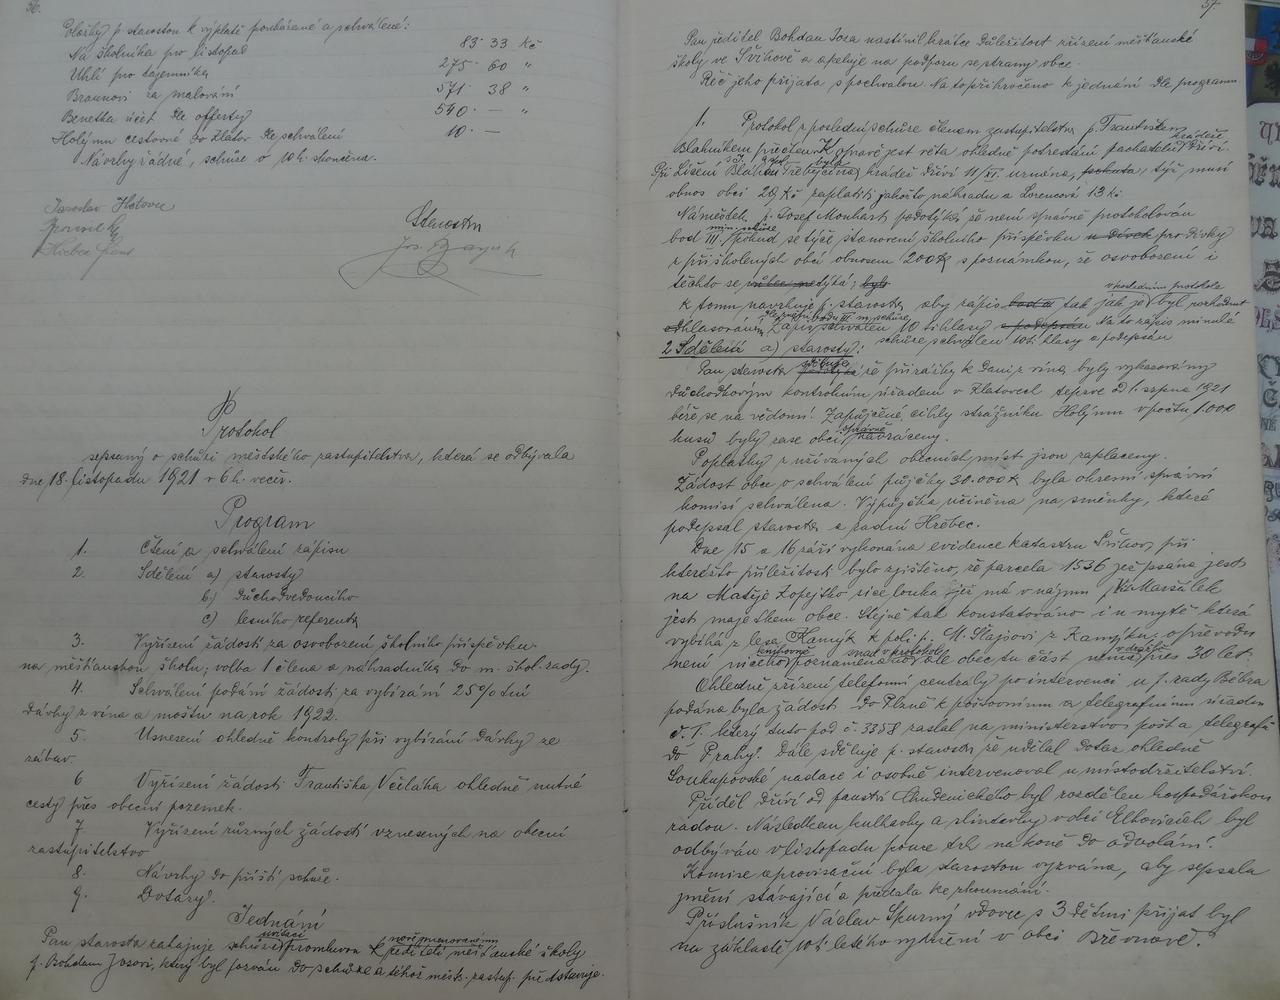 56.
Položky p. starostou k výplatě poukázané a schválené:
Na školníka pro listopad 83·33 Kč
Uhlí pro tajemníka 275·60 "
Braunovi za malování 571·38 "
Benetka účet dle offerty 540·— "
Holýmu cestovné do Klatov dle schválení 10·—
Návrhy žádné, schůze o 10 h. skončena.
Starosta
Protokol
sepsaný o schůzi městského zastupitelstva, která se odbývala
dne 18. listopadu 1921 v 6 h. večer.
Program
1. Čtení a schválení zápisu
2. Sdělení a) starosty
b) důchodvedoucího
c) lesního referenta
3. Vyřízení žádosti za osvobození školního příspěvku
na měšťanskou školu; volba 1 člena a náhradníka do m. škol. rady.
4. Schválení podání žádosti za vybírání 25% dní
dávky z vína a moštu na rok 1922.
5. Usnesení ohledně kontroly při vybírání dávky ze
zábav.
6 Vyřízení žádosti Františka ohledně nutné
cesty přes obecní pozemek.
7 Vyřízení různých žádostí vznesených na obecní
zastupitelstvo
8. Návrhy do příští schůze.
9. Dotazy.
Jednání
Pan starosta zahajuje schůzi promluvou k nově jmenovanému řediteli měšťanské školy
p. Bohdanu Josovi, který byl pozván do schůze a téhož městs. zastup. představuje.
57.
Pan ředitel Bohdan Josa nastínil krátce důležitost zřízení měšťanské
školy ve Švihově a apeluje na podporu se strany obce.
Řeč jeho přijata s pochvalou. Na to přikročeno k jednání dle programu
1. Protokol z poslední schůze členem zastupitelstva p. Františkem
Blahníkem přečten. K opravě jest věta ohledně potrestání pachatelů krádeže dříví.
Při líčení byla krádež dříví 11/XI. uznána, týž musí
obnos obci 28 Kč zaplatiti jakožto náhradu a Lorencová 13 Kč.
Náměstek p. Josef Monhart podotýká, že není správně protokolován
bod III. min. schůze pokud se týče stanovení školního příspěvku u dívek pro dívky
z přiškolených obcí obnosem 200 K s poznámkou, že osvobození i
těchto se týká; bylo
k tomu navrhuje p. starosta, aby zápis tak jak jej v posledním protokole byl rozhodnut
Zápis schválen 10 ti hlasy a podepsán Na to zápis minulé
2 Sdělení a) starosty: schůze schválen 10ti hlasy a podepsán
Pan starosta sděluje, že přirážky k dani z vína byly vykazovány
důchodkovým kontrolním úřadem v Klatovech teprve od 1. srpna 1921
béře se na vědomí. Zapůjčené cihly strážníku Holýmu v počtu 1.000
kusů byly zase obci správně navráceny.
Poplatky z užívaných obecních míst jsou zaplaceny.
Žádost obce o schválení půjčky 30.000 K byla okresní správní
komisí schválena. Výpůjčka učiněna na směnky, které
podepsal starosta a radní Hřebec.
Dne 15 a 16 září vykonána evidence katastru Švihov, při
kteréžto příležitosti bylo zjištěno, že parcela 1536 jež psána jest
na Matěje Kopejtko sice louka jíž má v nájmu p. K. Maršálek
jest majetkem obce. Stejně tak konstatováno i u mýtě která
vybíhá z lesa Kamýk k poli p. M. Šlajsovi z Kamýku; o převodu
není ničeho knihovně poznamenáno snad v protokole ale obec tu část nemá v držbě přes 30 let.
Ohledně zřízení telefonní centraly po intervenci u p. rady Bébra
podána byla žádost do Plzně k poštovnímu a telegrafnímu úřadu
č. 1. který tuto pod č. 3358 zaslal na ministerstvo pošt a telegrafů
do Prahy. Dále sděluje p. starosta, že udělal dotaz ohledně
Soukupovské nadace i osobně intervenoval u místodržitelství.
Příděl dříví od panství Chudenického byl rozdělen hospodářskou
radou. Následkem kulhavky a slintavky v obci Elhovicích byl
odbýván v listopadu pouze trh na koně do odvolání.
Komise aprovisační byla starostou vyzvána, aby sepsala
jmění stávající a předala ke zkoumání.
Příslušník Václav Skurný vdovec s 3 dětmi přijat byl
na základě 10ti letého vydržení v obci Břevnově.